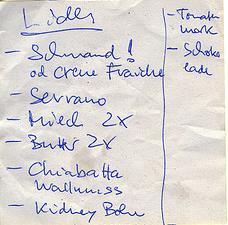 Lidl
- Schmand!
od Creme Fraiche
- Serrano
- Milch 2x
- Butter 2x
- Chiabatta
Wallnuss
- Kidney Bohn
- Tomaten
mark
- Schoko
lade